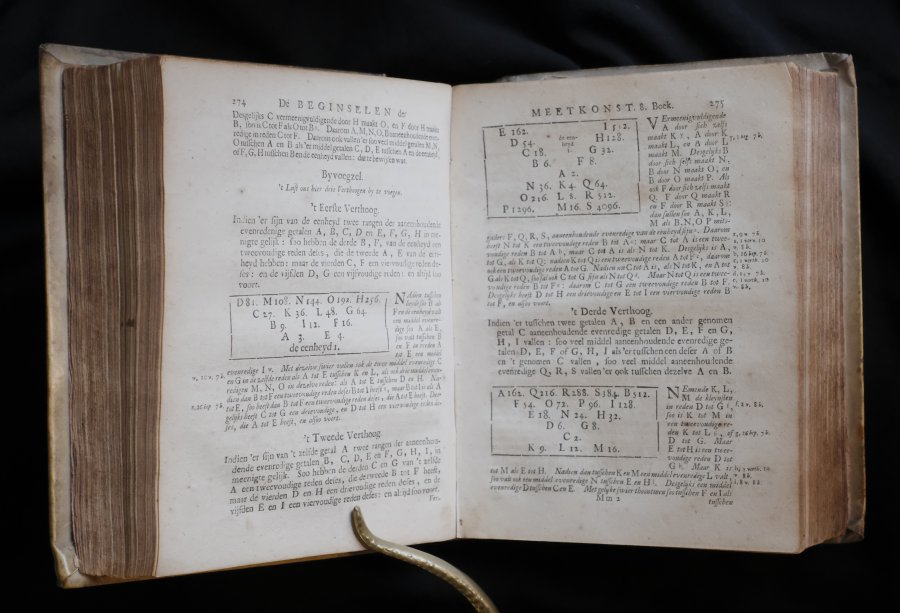 274 De BEGINSELEN der
Desgelijks C vermeenigvuldigende door H maakt O, en F door H maakt
B, soo is C tot F als O tot B. Daarom A, M, N, O, B aaneenhoudende even-
redige in reden C tot F. Daarom ook vallen'er soo veel middel getalen M, N,
O tusschen A en B als'er middel getalen C, D, E tusschen A en de eenheid,
of F, G, H tusschen B en de eenheyd vallen: dat te bewijsen was.
Byvoegzel.
't Lust ons hier drie Verthoogen by te voegen.
't Eerste Verthoog.
Indien 'er sijn van de eenheyd twee rangen der aaneenhoudende
evenredige getalen A, B, C, D en E, F, G, H in me-
nigte gelijk: soo hebben de derde B, F, van de eenheyd een
tweevoudige reden deses, die de tweede A, E van de een-
heyd hebben: maar de vierden C, F een viervoudige reden de-
ses: en de vijfden D, G een vijfvoudige reden: en altijd soo
voort.
D 81. M 108. N 144. O 192. H 256.
C 27. K 36. L 48. G 64.
B 9. I 12. F 16.
A 3. E 4.
de eenheyd 1.
NAdien tusschen
beyde soo B als
F en de eenheyd valt
een middel evenre-
dige soo A als E,
soo valt tusschen B
en F in reden A
tot E een middel
evenredige I. Met dezelve swier vallen ook de twee middel evenredige C
en G in de zelfde reden als A tot E tusschen K en L, als ook drie middel even-
redigen M, N, O in dezelve reden: als A tot E tusschen D en H. Na-
dien dan B tot F een tweevoudige reden deses B tot I heeft, maar B tot I is als A
tot E, soo heeft dan B tot F een tweevoudige reden deses, die A tot E heeft. Der-
gelijks heeft C tot G een drievoudige, en D tot H een viervoudige reden de-
ses, die A tot E heeft, en alsoo voort.
't Tweede Verthoog.
Indien 'er sijn van 't zelfde getal A twee rangen der aaneenhou-
dende evenredige getalen B, C, D, E en F, G, H, I, in
meenigte gelijk. Soo hebben de derden C en G van 't zelfde
A een tweevoudige reden deses, die de tweede B tot F heeft,
maar de vierden D en H een drievoudige reden deses, en de
vijfden E en I een viervoudige reden deses: en altijd soo voort.
Ver-
MEETKONST. 8. Boek. 275
E 162. I 512.
D 54. de een- H 128.
C 18. heyd G 32.
B 6. 1. F 8.
A 2.
N 36. K 4. Q 64.
O 216. L 8. R 512.
P 1296. M 16. S 4096.
VErmeenigvuldigende
A door sich zelfs
maakt K, A door K
maakt L, en A door L
maakt M. Desgelijks B
door sich selfs maakt N,
B door N maakt O, en
B door O maakt P. Als
ook F door sich zelfs maakt
Q. F door Q maakt R
en F door R maakt S:
dan sullen soo A, K, L,
M als B, N, O P mits-
gaders F, Q, R, S, aaneenhoudende evenredige van de eenheyd sijn. Daarom
heeft N tot K een tweevoudige reden B tot A: maar C tot A is een twee-
voudige reden B tot A, maar C tot A is als N tot K. Desgelijks is A,
tot G, als K tot Q: nadien K tot Q is een tweevoudige reden A tot F, daarom
ook een tweevoudige reden A tot G. Nadien nu C tot A is, als N tot K, en A tot
G als K tot Q, soo sal ook C tot G sijn als N tot Q. Maar N tot Q is een twee-
voudige reden B tot F: daarom C tot G een tweevoudige reden B tot F.
Desgelijks heeft D tot H een drievoudige en E tot I een viervoudige reden B
tot F, en alsoo voort.
't Derde Verthoog.
Indien 'er tusschen twee getalen A, B en een ander genomen
getal C aaneenhoudende evenredige getalen D, E, F en G,
H, I vallen: soo veel middel aaneenhoudende evenredige ge-
talen D, E, F of G, H, I als'er tusschen een deser A of B
en 't genomen C vallen, soo veel middel aaneenhoudende
evenredige Q, R, S vallen'er ook tusschen dezelve A en B.
A 162. Q 216. R 288. S 384. B 512.
F 54. O 72. P 96. I 128.
E 18. N 24. H 32.
D 6. G 8.
C 2.
K 9. L 12. M 16.
NEmende K, L,
M de kleynsten
in reden D tot G,
soo is K tot M in
een tweevoudige re-
den K tot L, of
D tot G. Maar
E tot H is een twee-
voudige reden D tot
G. Maar K is
tot M als E tot H. Nadien dan tusschen K en M een middel evenredige L valt,
soo van ook een middel evenredige N tusschen E en H. Desgelijks is een middel
evenredige D tusschen C en E. Met gelijke swier thoont men soo tusschen F en I als
M m 2 tusschen